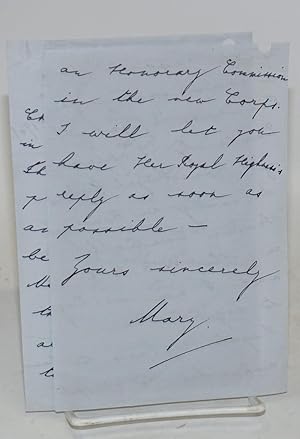 an Honorary Commission
in the new Corps.
I will let you
have Her Royal Highness's
reply as soon as
possible —
Yours sincerely
Mary.